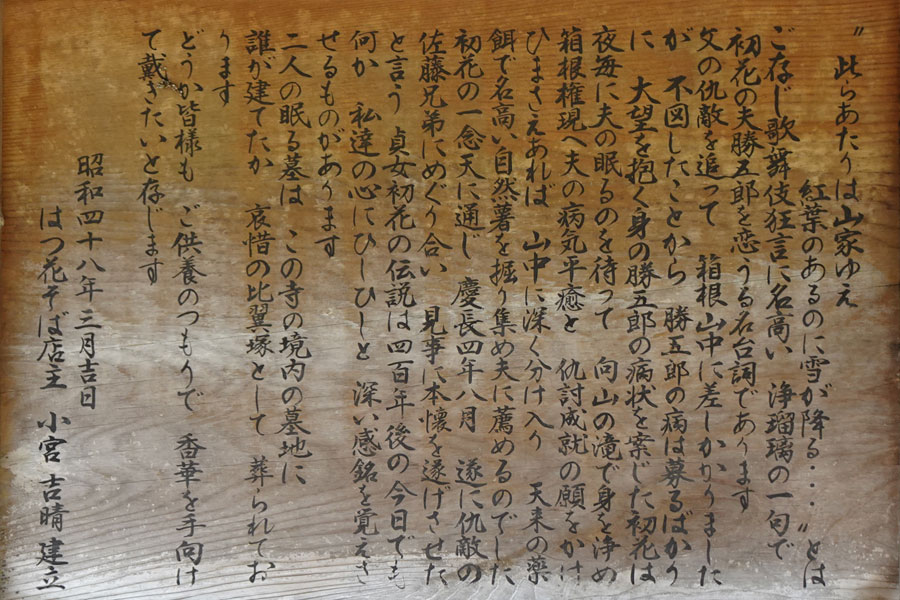 〝此らあたりは山家ゆえ
紅葉のあるのに雪が降る・・・〟とは
ご存じ歌舞伎狂言に名高い 浄瑠璃の一句で
初花の夫勝五郎を恋うる名台詞であります
父の仇敵を追って 箱根山中に差しかかりました
が 不図したことから 勝五郎の病は募るばかり
に 大望を抱く身の勝五郎の病状を案じた初花は
夜毎に夫の眠るのを待って 向山の滝で身を浄め
箱根権現へ夫の病気平癒と 仇討成就の願をかけ
ひまさえあれば 山中に深く分け入り 天来の薬
餌で名高い自然薯を掘り集め夫に薦めるのでした
初花の一念天に通じ 慶長四年八月 遂に仇敵の
佐藤兄弟にめぐり合い 見事に本懐を遂げさせた
と言う 貞女初花の伝説は四百年後の今日でも
何か 私達の心にひしひしと 深い感銘を覚えさ
せるものがあります
二人の眠る墓は この寺の境内の墓地に
誰が建てたか 哀惜の比翼塚として 葬られてお
ります
どうか皆様も ご供養のつもりで 香華を手向け
て戴きたいと存じます
昭和四十八年三月吉日
はつ花そば店主 小宮吉晴建立